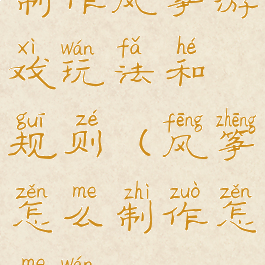 制作风筝游
xì wán fǎ hé
戏玩法和
guī zé fēng zhēng
规则（风筝
zěn me zhì zuò zěn
怎么制作怎
me wán